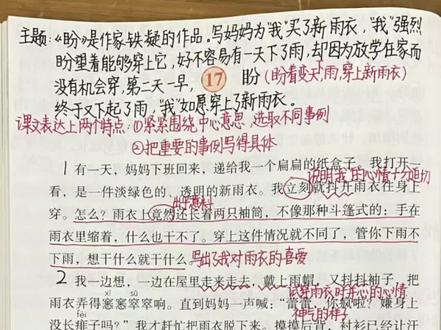 主题:《盼》是作家铁凝的作品。写妈妈为“我”买了新雨衣,“我”强烈
盼望着能够穿上它,好不容易有一天下了雨,却因为放学在家而
没有机会穿,第二天一早,
17 盼(盼着变天下雨,穿上新雨衣)
终于又下起了雨,“我”如愿穿上了新雨衣。
课文表达上两个特点:①紧紧围绕中心意思,选取不同事例
②把重要的事例写得具体
1 有一天,妈妈下班回来,递给我一个扁扁的纸盒子。我打开一
说明我的心情十分迫切
看,是一件淡绿色的、透明的新雨衣。我立刻就抖开雨衣往身上
出乎意料
穿。怎么?雨衣上竟然还长着两只袖筒,不像那种斗篷式的:手在
雨衣里缩着,什么也干不了。穿上这件情况就不同了,管你下雨不
下雨,想干什么就干什么。
写出了我对雨衣的喜爱
2 我一边想,一边在屋里走来走去,戴上雨帽,又抖抖袖子,把
试穿雨衣时开心的心情
xī xī sū sū
雨衣弄得窸窸窣窣响。直到妈妈一声喊:“蕾蕾,你疯啦?嫌身上
fèi
没长痱子吗?”我才赶忙把雨衣脱下来。摸摸后背,衬衫已经汗